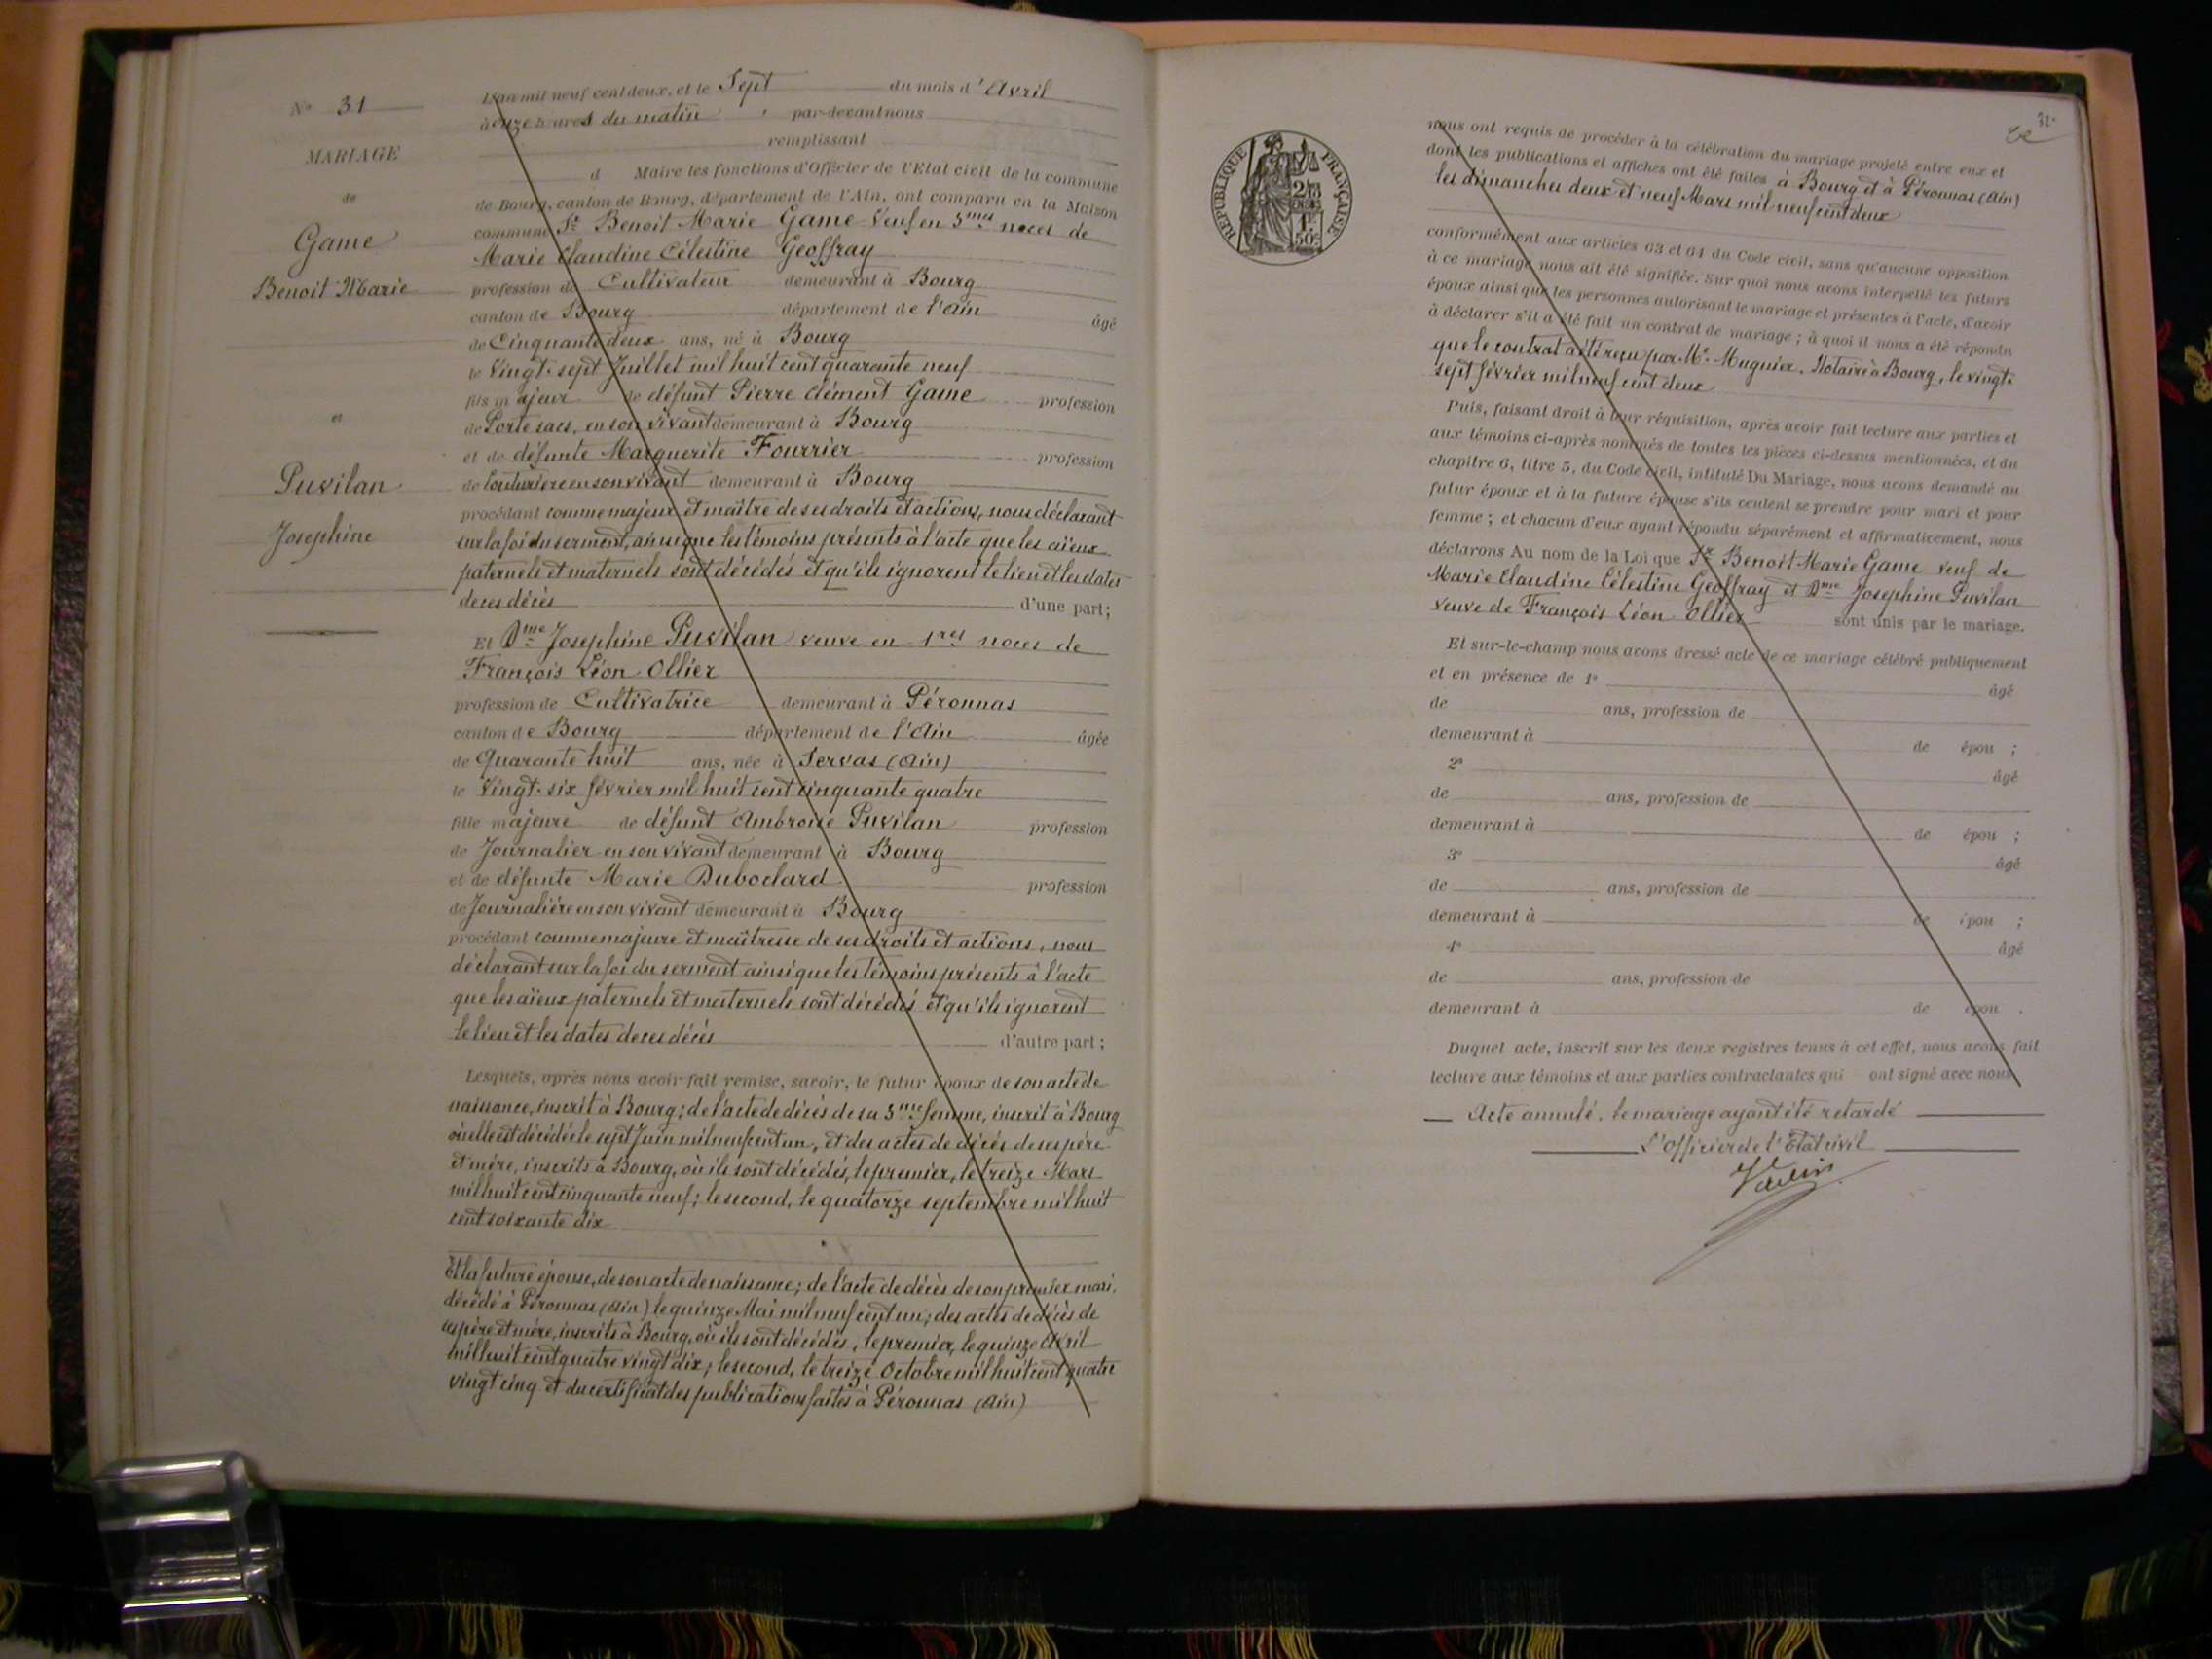 N° 31
MARIAGE
de
Game
Benoit Marie
et
Puvilan
Josephine
L'an mil neuf cent deux, et le Sept du mois d'Avril
à onze heures du matin, par-devant nous
remplissant
d Maire les fonctions d'Officier de l'Etat civil de la commune
de Bourg, canton de Bourg, département de l'Ain, ont comparu en la Maison
commune Sr Benoit Marie Game Veuf en 3mes noces de
Marie Claudine Célestine Geoffray
profession de Cultivateur demeurant à Bourg
canton de Bourg département de l'Ain âgé
de Cinquante deux ans, né à Bourg
le Vingt-sept Juillet mil huit cent quarante neuf
fils majeur de défunt Pierre Clément Game profession
de Porte sacs, en son vivant demeurant à Bourg
et de défunte Marguerite Fourrier profession
de Couturiere en son vivant demeurant à Bourg
procédant comme majeur et maître de ses droits et actions, nous déclarant
sur la foi du serment, ainsi que les témoins présents à l'acte que les aïeux
paternels et maternels sont décédés et qu'ils ignorent le lieu et les dates
de ces décès d'une part;
Et Dme Josephine Puvilan veuve en 1res noces de
François Léon Ollier
profession de Cultivatrice demeurant à Péronnas
canton de Bourg département de l'Ain âgée
de Quarante huit ans, née à Servas (Ain)
le Vingt-six février mil huit cent cinquante quatre
fille majeure de défunt Ambroise Puvilan profession
de Journalier en son vivant demeurant à Bourg
et de défunte Marie Duboclard profession
de Journalière en son vivant demeurant à Bourg
procédant comme majeure et maîtresse de ses droits et actions, nous
déclarant sur la foi du serment ainsi que les témoins présents à l'acte
que les aïeux paternels et maternels sont décédés et qu'ils ignorent
le lieu et les dates de ces décès d'autre part;
Lesquels, après nous avoir fait remise, savoir, le futur époux de son acte de
naissance, inscrit à Bourg; de l'acte de décès de sa 3me femme, inscrit à Bourg
où elle est décédée le sept Juin mil neuf cent un, et des actes de décès de ses père
et mère, inscrits à Bourg, où ils sont décédés, le premier, le treize Mars
mil huit cent cinquante neuf; le second, le quatorze septembre mil huit
cent soixante dix
Et la future épouse, de son acte de naissance; de l'acte de décès de son premier mari,
décédé à Péronnas (Ain) le quinze Mai mil neuf cent un; des actes de décès de
ses père et mère, inscrits à Bourg, où ils sont décédés, le premier, le quinze Avril
mil huit cent quatre vingt dix; le second, le treize Octobre mil huit cent quatre
vingt cinq et du certificat des publications faites à Péronnas (Ain)
32
RÉPUBLIQUE FRANÇAISE
1F
50c
nous ont requis de procéder à la célébration du mariage projeté entre eux et
dont les publications et affiches ont été faites à Bourg et à Péronnas (Ain)
les dimanches deux et neuf Mars mil neuf cent deux
conformément aux articles 63 et 64 du Code civil, sans qu'aucune opposition
à ce mariage nous ait été signifiée. Sur quoi nous avons interpellé les futurs
époux ainsi que les personnes autorisant le mariage et présentes à l'acte, d'avoir
à déclarer s'il a été fait un contrat de mariage; à quoi il nous a été répondu
que le contrat a été reçu par Me Muguier, Notaire à Bourg, le vingt-
sept février mil neuf cent deux
Puis, faisant droit à leur réquisition, après avoir fait lecture aux parties et
aux témoins ci-après nommés de toutes les pièces ci-dessus mentionnées, et du
chapitre 6, titre 5, du Code civil, intitulé Du Mariage, nous avons demandé au
futur époux et à la future épouse s'ils veulent se prendre pour mari et pour
femme; et chacun d'eux ayant répondu séparément et affirmativement, nous
déclarons Au nom de la Loi que Sr Benoit Marie Game veuf de
Marie Claudine Célestine Geoffray et Dme Josephine Puvilan
veuve de François Léon Ollier sont unis par le mariage.
Et sur-le-champ nous avons dressé acte de ce mariage célébré publiquement
et en présence de 1° âgé
de ans, profession de
demeurant à de épou ;
2° âgé
de ans, profession de
demeurant à de épou ;
3° âgé
de ans, profession de
demeurant à de épou ;
4° âgé
de ans, profession de
demeurant à de épou .
Duquel acte, inscrit sur les deux registres tenus à cet effet, nous avons fait
lecture aux témoins et aux parties contractantes qui ont signé avec nous
Acte annulé, le mariage ayant été retardé
L'Officier de l'Etat civil